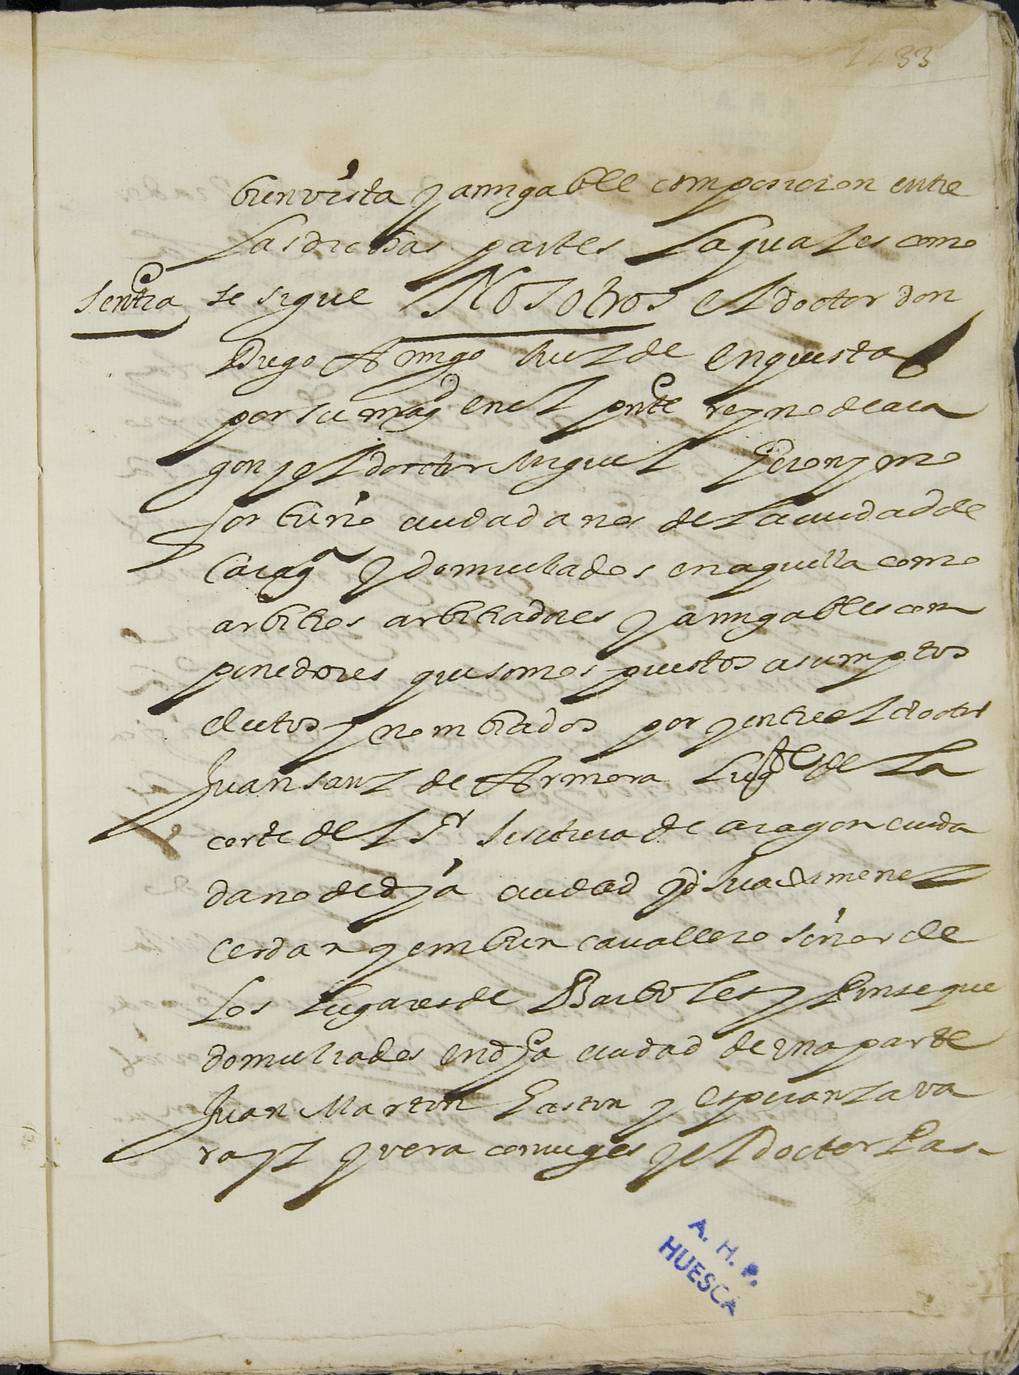 1133
bien vista y amigable composicion entre
las dichas partes la qual es como
sentia se sigue Nosotros el doctor don
Diego Amigo Juez de enquesta
por su mag en el pnte reyno de ara
gon y el doctor Miguel Geronymo
fortuño ciudadanos de la ciudad de
Çarag y domiciliados en aquella como
arbitros arbitradores y amigables com
ponedores que somos puestos asumptos
electos y nombrados por y entre el doctor
Juan sanz de Armora Lug de la
corte del Sr Justicia de aragon ciuda
dano de dha ciudad y d Juan ximenez
cerdan y embun cavallero señor de
los lugares de Barboles y Pinseque
domiciliados en dha ciudad de una parte
Juan Martin Gaston y esperanza va
rayz y vera coniuges y el doctor Pas-
A. H. P.
HUESCA